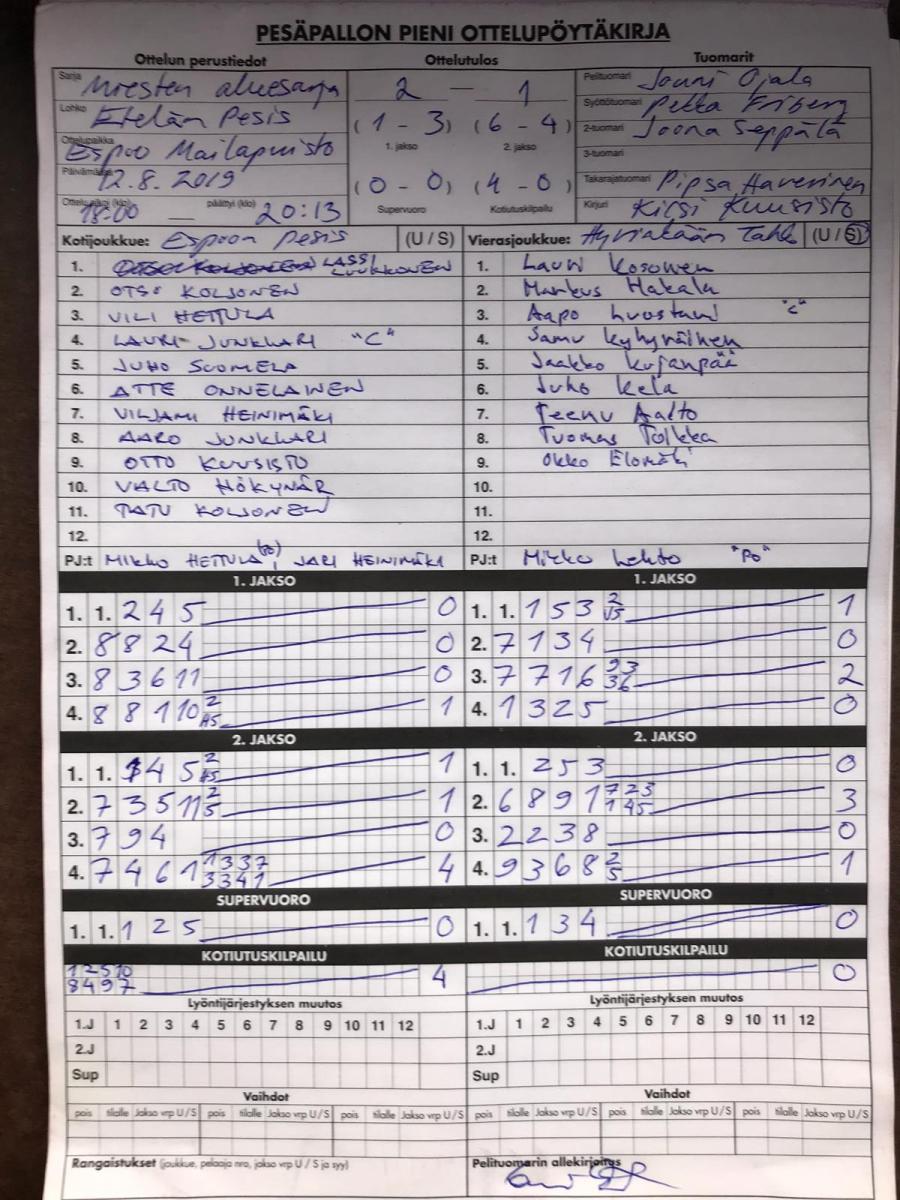 PESÄPALLON PIENI OTTELUPÖYTÄKIRJA
Ottelun perustiedot Ottelutulos Tuomarit
Sarja Miesten aluesarja 2 — 1 Pelituomari Jouni Ojala
Lohko Etelän Pesis (1 - 3) (6 - 4) Syöttötuomari Pekka Friberg
1. jakso 2. jakso 2-tuomari Joona Seppälä
Ottelupaikka Espoo Mailapuisto 3-tuomari
Päivämäärä 12.8. 2019 (0 - 0) (4 - 0) Takarajatuomari Pipsa Haverinen
Ottelu alkoi (klo) 18:00 — päättyi (klo) 20:13 Supervuoro Kotiutuskilpailu Kirjuri Kirsi Kuusisto
Kotijoukkue: Espoon Pesis (U / S) Vierasjoukkue: Hyvinkään Tahko (U / S)
1. LASSI LUUKKONEN 1. Lauri Kosonen
2. OTSO KOLJONEN 2. Markus Hakala
3. VILI HEITULA 3. Aapo "C"
4. LAURI JUNKKARI "C" 4. Samu Kyhyräinen
5. JUHO SUOMELA 5. Jaakko Kujanpää
6. ATTE ONNELAINEN 6. Juho Kela
7. VILJAMI HEINIMÄKI 7. Teemu Aalto
8. AARO JUNKKARI 8. Tuomas Tolkka
9. OTTO KUUSISTO 9. Okko Elomäki
10. VALTO HÖKYNÄR 10.
11. TATU KOLJONEN 11.
12. 12.
PJ:t MIKKO HEITULA, JARI HEINIMÄKI PJ:t Mikko Lehto "PO"
1. JAKSO 1. JAKSO
1. 1. 2 4 5 0 1. 1. 1 5 3 2 1
2. 8 8 2 4 0 2. 7 1 3 4 0
3. 8 3 6 11 0 3. 7 7 1 6 93 36 2
4. 8 8 1 10 2 1 4. 1 3 2 5 0
2. JAKSO 2. JAKSO
1. 1. 4 5 2 1 1. 1. 2 5 3 0
2. 7 3 5 11 2 5 1 2. 6 8 9 1 723 145 3
3. 7 9 4 0 3. 2 2 3 8 0
4. 7 4 6 1 1337 3341 4 4. 9 3 6 8 2 5 1
SUPERVUORO SUPERVUORO
1. 1. 1 2 5 0 1. 1. 1 3 4 0
KOTIUTUSKILPAILU KOTIUTUSKILPAILU
1 2 5 10 4 0
8 4 9 7
Lyöntijärjestyksen muutos Lyöntijärjestyksen muutos
1.J 1 2 3 4 5 6 7 8 9 10 11 12 1.J 1 2 3 4 5 6 7 8 9 10 11 12
2.J 2.J
Sup Sup
Vaihdot Vaihdot
pois tilalle Jakso vrp U/S pois tilalle Jakso vrp U/S pois tilalle Jakso vrp U/S pois tilalle Jakso vrp U/S pois tilalle Jakso vrp U/S pois tilalle Jakso vrp U/S
Rangaistukset (joukkue, pelaaja nro, jakso vrp U / S ja syy) Pelituomarin allekirjoitus